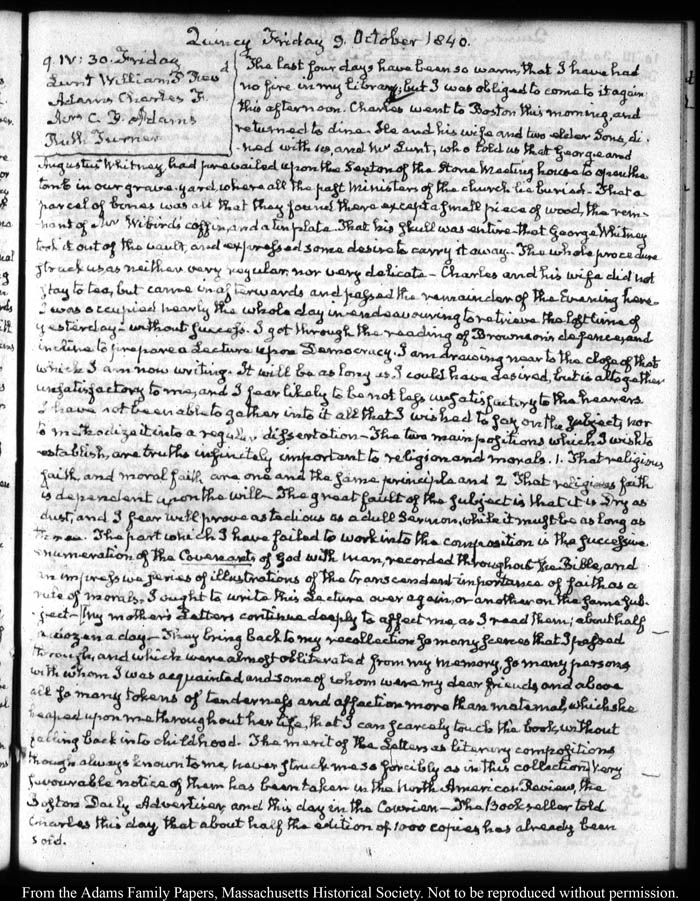 Quincy Friday 9. October 1840.
9. IV: 30. Friday
Lunt William P. Rev d
Adams Charles F.
Mrs C. F. Adams
Ruth Turner
The last four days have been so warm, that I have had
no fire in my library; but I was obliged to come to it again
this afternoon. Charles went to Boston this morning, and
returned to dine. He and his wife and two elder Sons, di-
ned with us, and Mr Lunt, who told us that George and
Augustus Whitney, had prevailed upon the Sexton of the Stone Meeting house to open the
tomb in our grave-yard where all the past Ministers of the church lie buried. That a
parcel of bones was all that they found there except a small piece of wood, the rem-
nant of Mr Wibird's coffin, and a tin plate. That his skull was entire—that George Whitney
took it out of the vault, and expressed some desire to carry it away. The whole procedure
struck us as neither very regular, nor very delicate—Charles and his wife did not
stay to tea, but came in afterwards and passed the remainder of the Evening here.
I was occupied nearly the whole day in endeavouring to retrieve the lost time of
yesterday—without success. I got through the reading of Brownson's defence, and
incline to prepare a Lecture upon Democracy. I am drawing near to the close of that
which I am now writing. It will be as long as I could have desired, but is altogether
unsatisfactory to me, and I fear likely to be not less unsatisfactory to the hearers.
I have not been able to gather into it all that I wished to say on the subject, nor
to methodize it into a regular dissertation—The two main positions which I wish to
establish, are truths infinitely important to religion and morals. 1. That religious
faith, and moral faith are one and the same principle and 2 That religious faith
is dependent upon the will—The great fault of the subject is that it is dry as
dust, and I fear will prove as tedious as a dull Sermon, while it must be as long as
The part which I have failed to work into the composition is the successive
enumeration of the Covenants of God with man, recorded throughout the Bible, and
an impressive series of illustrations of the transcendent importance of faith as a
rule of morals. I ought to write this Lecture over again, or another on the same sub-
ject—My mother's Letters continue deeply to affect me, as I read them; about half
a dozen a day—They bring back to my recollection so many scenes that I passed
through, and which were almost obliterated from my memory, so many persons
with whom I was acquainted and some of whom were my dear friends and above
all so many tokens of tenderness and affection more than maternal, which she
heaped upon me throughout her life, that I can scarcely touch the book, without
falling back into childhood. The merit of the Letters as literary compositions
though always known to me, never struck me so forcibly as in this collection, Very
favourable notice of them has been taken in the North American Review, the
Boston Daily Advertiser and this day in the Courier—The Bookseller told
Charles this day that about half the edition of 1000 copies has already been
sold.
From the Adams Family Papers, Massachusetts Historical Society. Not to be reproduced without permission.